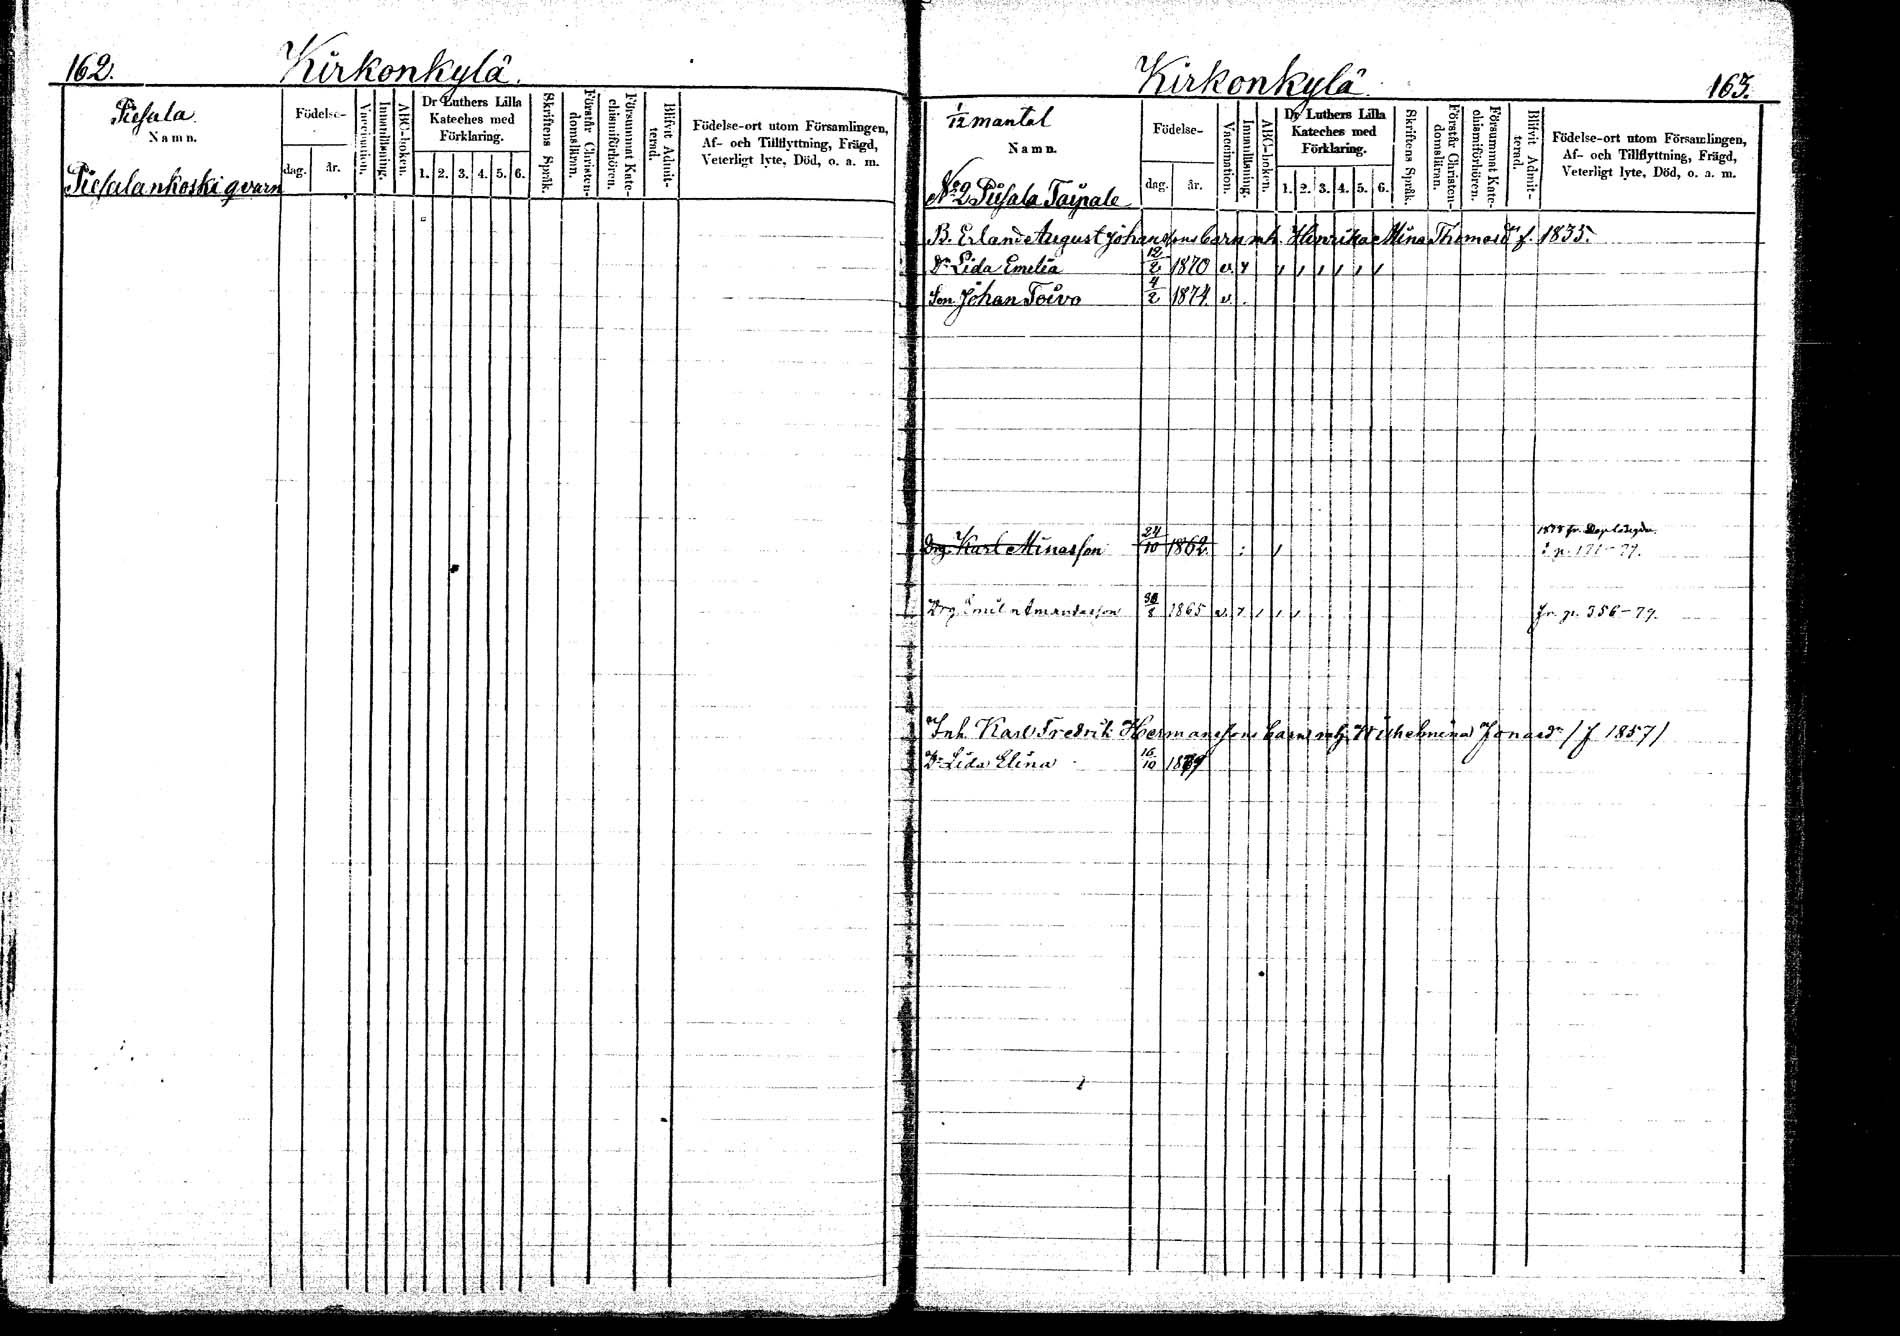 162.
Kirkonkylä.
Piesala.
Namn.
Födelse-
dag. år.
Vaccination.
Innanläsning.
ABC-boken.
Dr Luthers Lilla
Kateches med
Förklaring.
1. 2. 3. 4. 5. 6.
Skriftens Språk.
Förstår Christen-
domsläran.
Försummat Kate-
chismiförhören.
Blifvit Admit-
terad.
Födelse-ort utom Församlingen,
Af- och Tillflyttning, Frägd,
Veterligt lyte, Död, o. a. m.
Piesalankoski qvarn
Kirkonkylä.
163.
1/12 mantal
Namn.
Födelse-
dag. år.
Vaccination.
Innanläsning.
ABC-boken.
Dr Luthers Lilla
Kateches med
Förklaring.
1. 2. 3. 4. 5. 6.
Skriftens Språk.
Förstår Christen-
domsläran.
Försummat Kate-
chismiförhören.
Blifvit Admit-
terad.
Födelse-ort utom Församlingen,
Af- och Tillflyttning, Frägd,
Veterligt lyte, Död, o. a. m.
No 2 Piesala Taipale
B. Erland August Johanssons barn mh. Henrika Mina Thomasdr f. 1835.
Dr Lida Emelia 12/2 1870 v.
Son Johan Toivo 4/2 1874. v.
Drg. Karl Minasson 24/10 1862. 1878 fr.
p. 171-79.
Drg. Emil Amandasson 30/8 1865 v. fr. p. 356-79.
Inh. Karl Fredrik Hermanssons barn Wilhelmina Jonasdr /f 1857/
Dr Lida Elina 16/10 1879